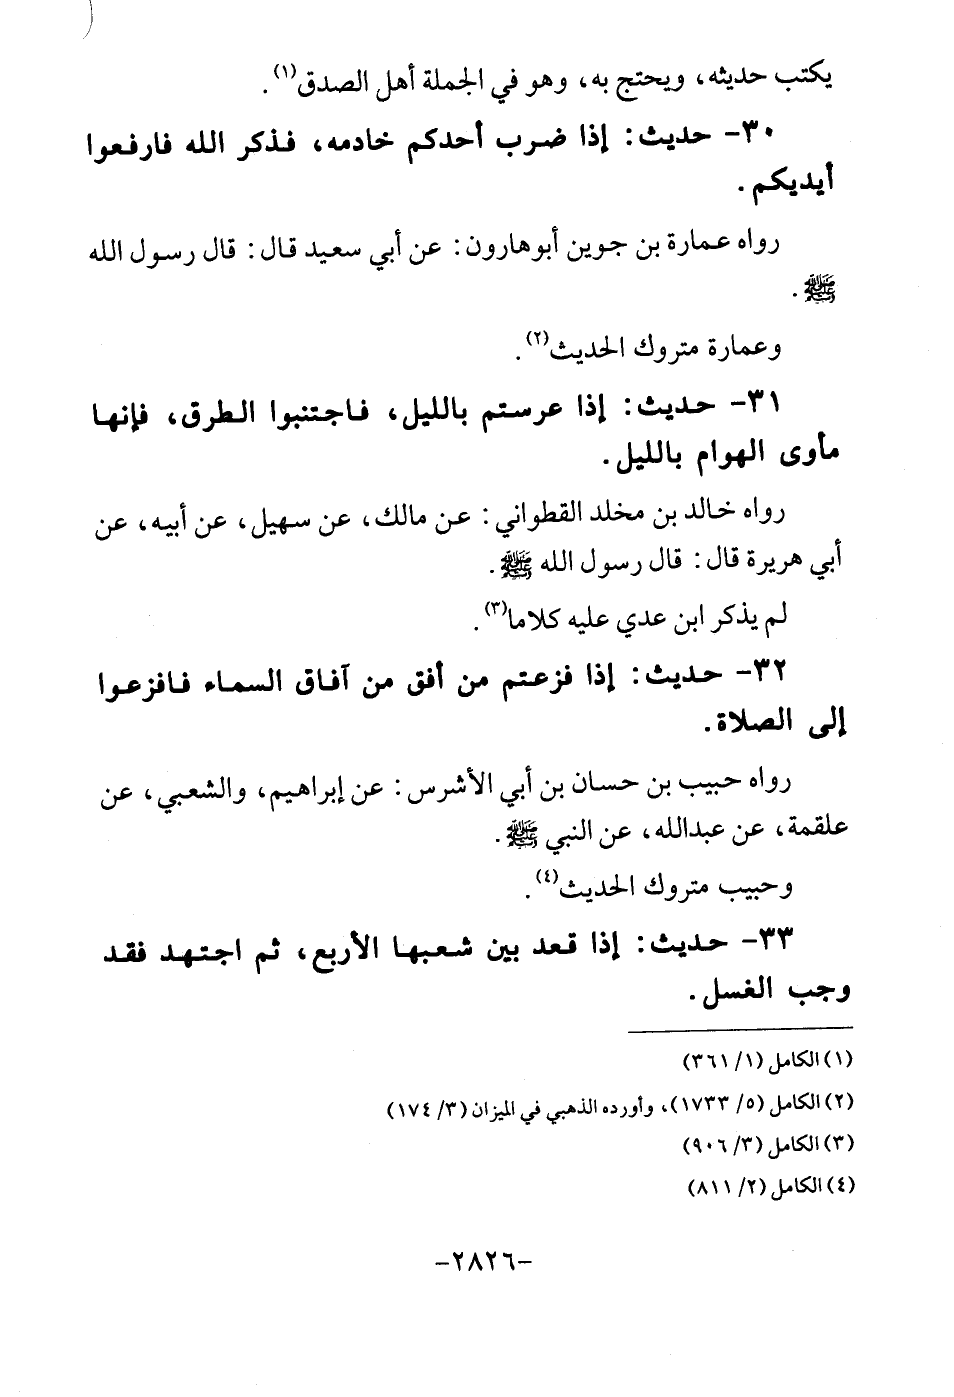 يكتب حديثه، ويحتج به، وهو في الجملة أهل الصدق(١).
٣٠- حديث: إذا ضرب أحدكم خادمه، فذكر الله فارفعوا
أيديكم.
رواه عمارة بن جوين أبوهارون: عن أبي سعيد قال: قال رسول الله
ﷺ.
وعمارة متروك الحديث(٢).
٣١- حديث: إذا عرستم بالليل، فاجتنبوا الطرق، فإنها
مأوى الهوام بالليل.
رواه خالد بن مخلد القطواني: عن مالك، عن سهيل، عن أبيه، عن
أبي هريرة قال: قال رسول الله ﷺ.
لم يذكر ابن عدي عليه كلاما(٣).
٣٢- حديث: إذا فزعتم من أفق من آفاق السماء فافزعوا
إلى الصلاة.
رواه حبيب بن حسان بن أبي الأشرس: عن إبراهيم، والشعبي، عن
علقمة، عن عبدالله، عن النبي ﷺ.
وحبيب متروك الحديث(٤).
٣٣- حديث: إذا قعد بين شعبها الأربع، ثم اجتهد فقد
وجب الغسل.
(١) الكامل (١/ ٣٦١)
(٢) الكامل (٥/ ١٧٣٣)، وأورده الذهبي في الميزان (٣/ ١٧٤)
(٣) الكامل (٣/ ٩٠٦)
(٤) الكامل (٢/ ٨١١)
-٢٨٢٦-